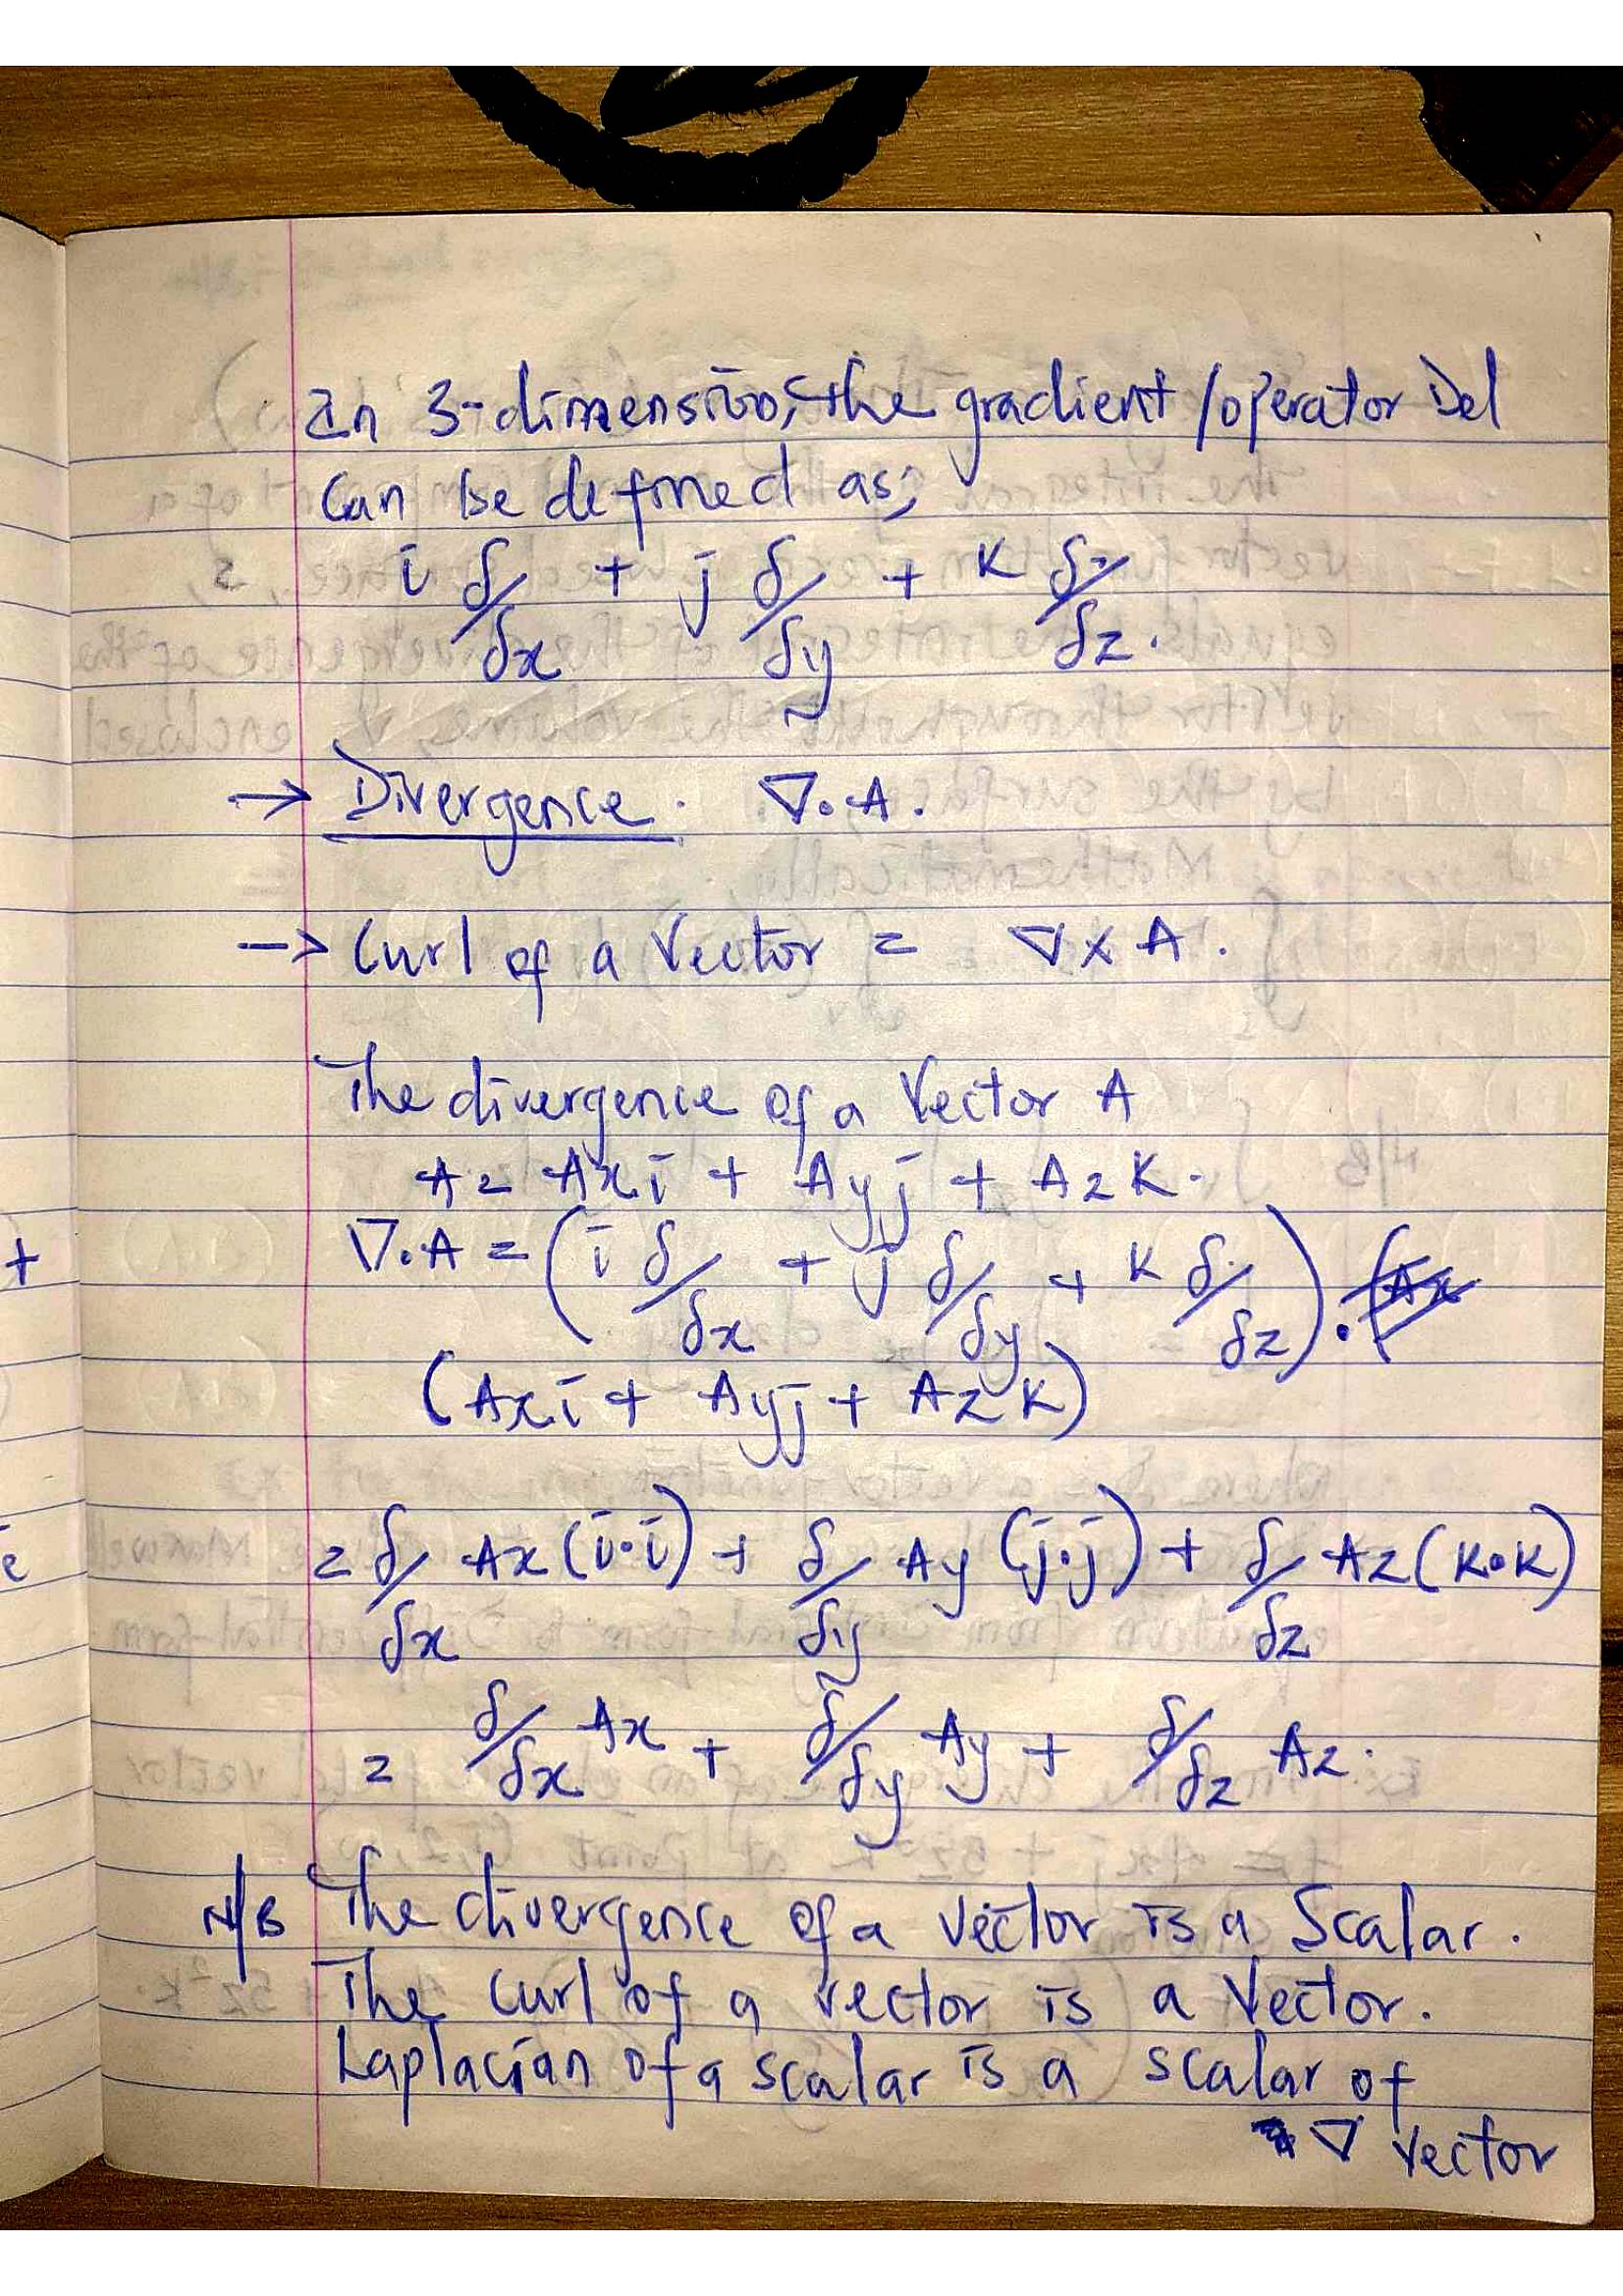 In 3-dimension, the gradient/operator Del
Can be defined as;
i δ/δx + j δ/δy + k δ/δz.
→ Divergence. ∇·A.
→ Curl of a vector = ∇×A.
The divergence of a vector A
A = Axi + Ayj + Azk.
∇·A = (i δ/δx + j δ/δy + k δ/δz) · (Ax
(Axi + Ayj + Azk)
= δ/δx Ax(i·i) + δ/δy Ay(j·j) + δ/δz Az(k·k)
= δ/δx Ax + δ/δy Ay + δ/δz Az.
N/B The divergence of a vector is a Scalar.
The curl of a vector is a vector.
Laplacian of a scalar is a scalar of
∇ vector
+
e